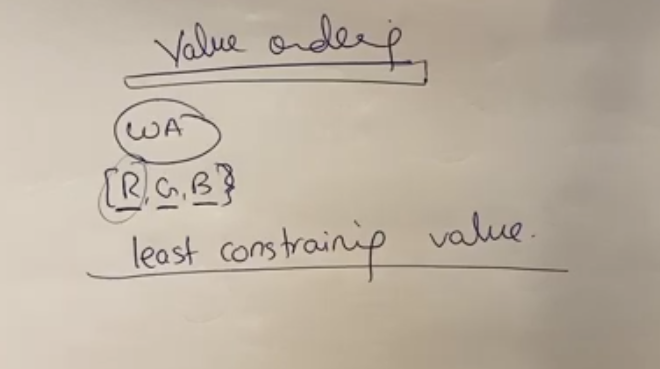 Value ordering
WA
{R, G, B}
least constraining value.